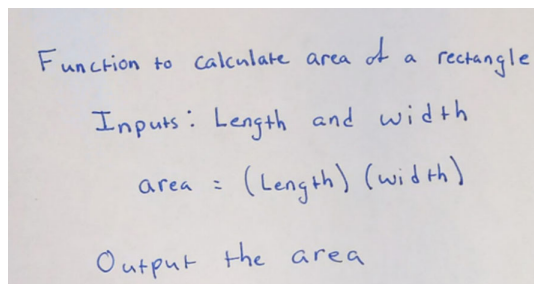 Function to calculate area of a rectangle
Inputs: Length and width
area = (Length) (width)
Output the area